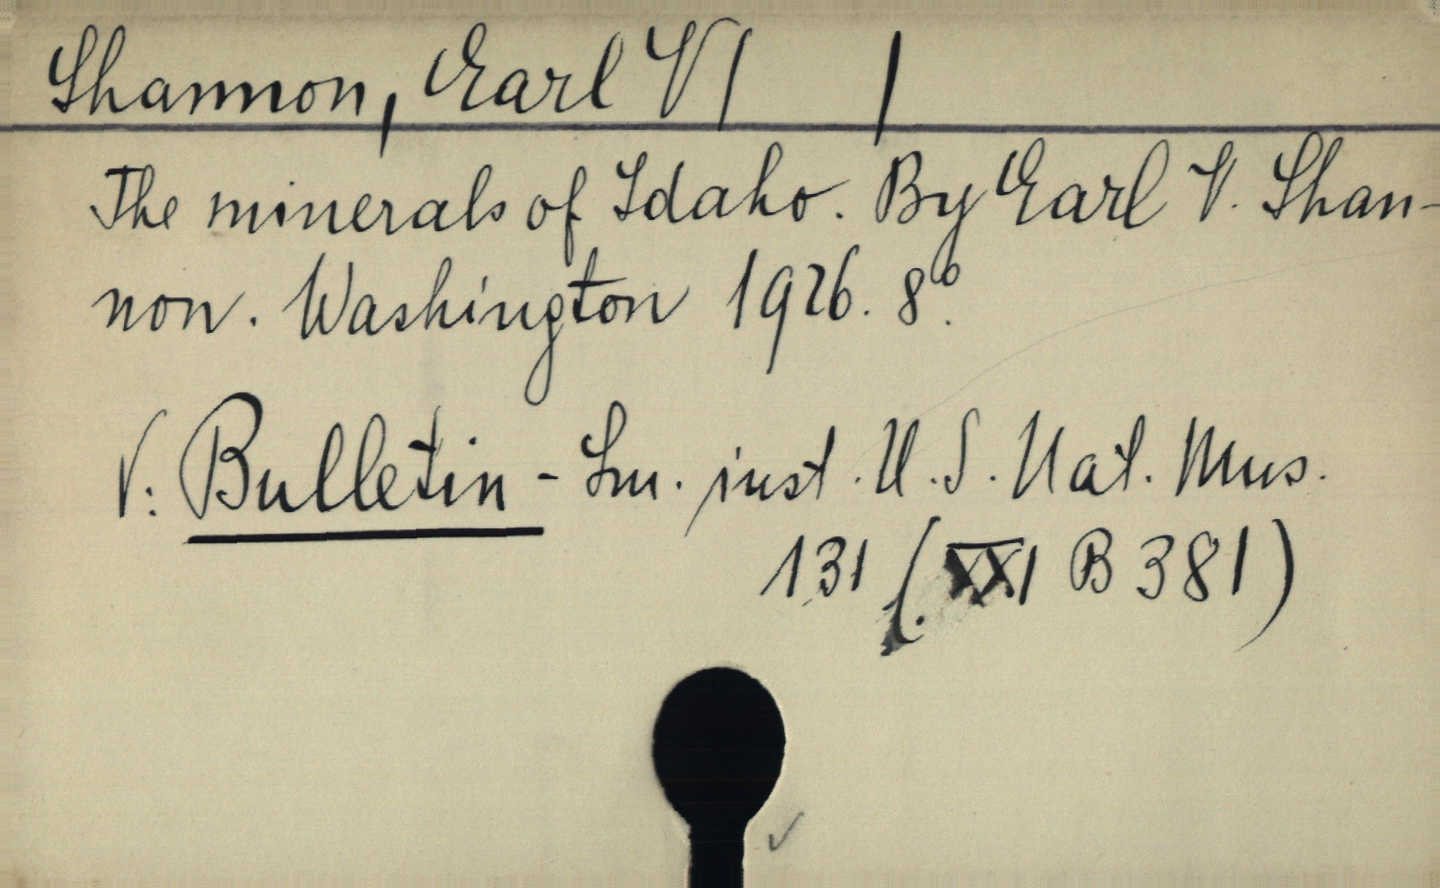 Shannon, Earl V/ /
The minerals of Idaho. By Earl V. Shan-
non. Washington 1926. 8º.
V: Bulletin - Sm. inst. U.S. Nat. Mus.
131 (XXI B 381)